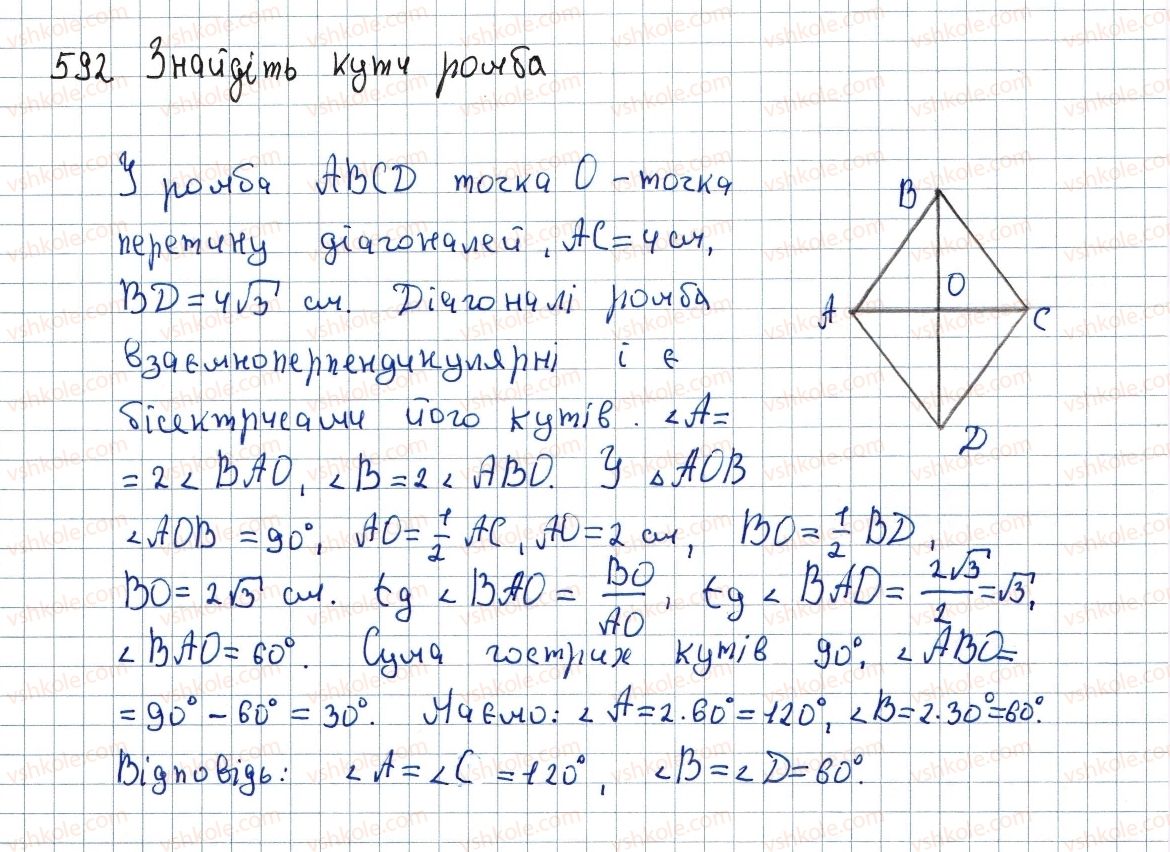 592 Знайдіть кути ромба
У ромба ABCD точка O – точка
перетину діагоналей, AC = 4 см,
BD = 4√3 см. Діагоналі ромба
взаємноперпендикулярні і є
бісектрисами його кутів. ∠A=
= 2∠BAO, ∠B = 2∠ABO. У △AOB
∠AOB = 90°, AO = 1/2 AC, AO = 2 см, BO = 1/2 BD,
BO = 2√3 см. tg∠BAO = BO/AO, tg∠BAD = 2√3/2 = √3,
∠BAO = 60°. Сума гострих кутів 90°, ∠ABO=
= 90° – 60° = 30°. Маємо: ∠A = 2·60° = 120°, ∠B = 2·30° = 60°.
Відповідь: ∠A = ∠C = 120°, ∠B = ∠D = 60°.
B
O
A
C
D
vshkole.com